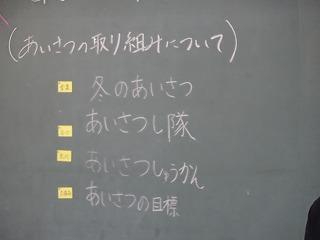 (あいさつの取り組みについて)
冬のあいさつ
あいさつし隊
あいさつしゅうかん
あいさつの目標